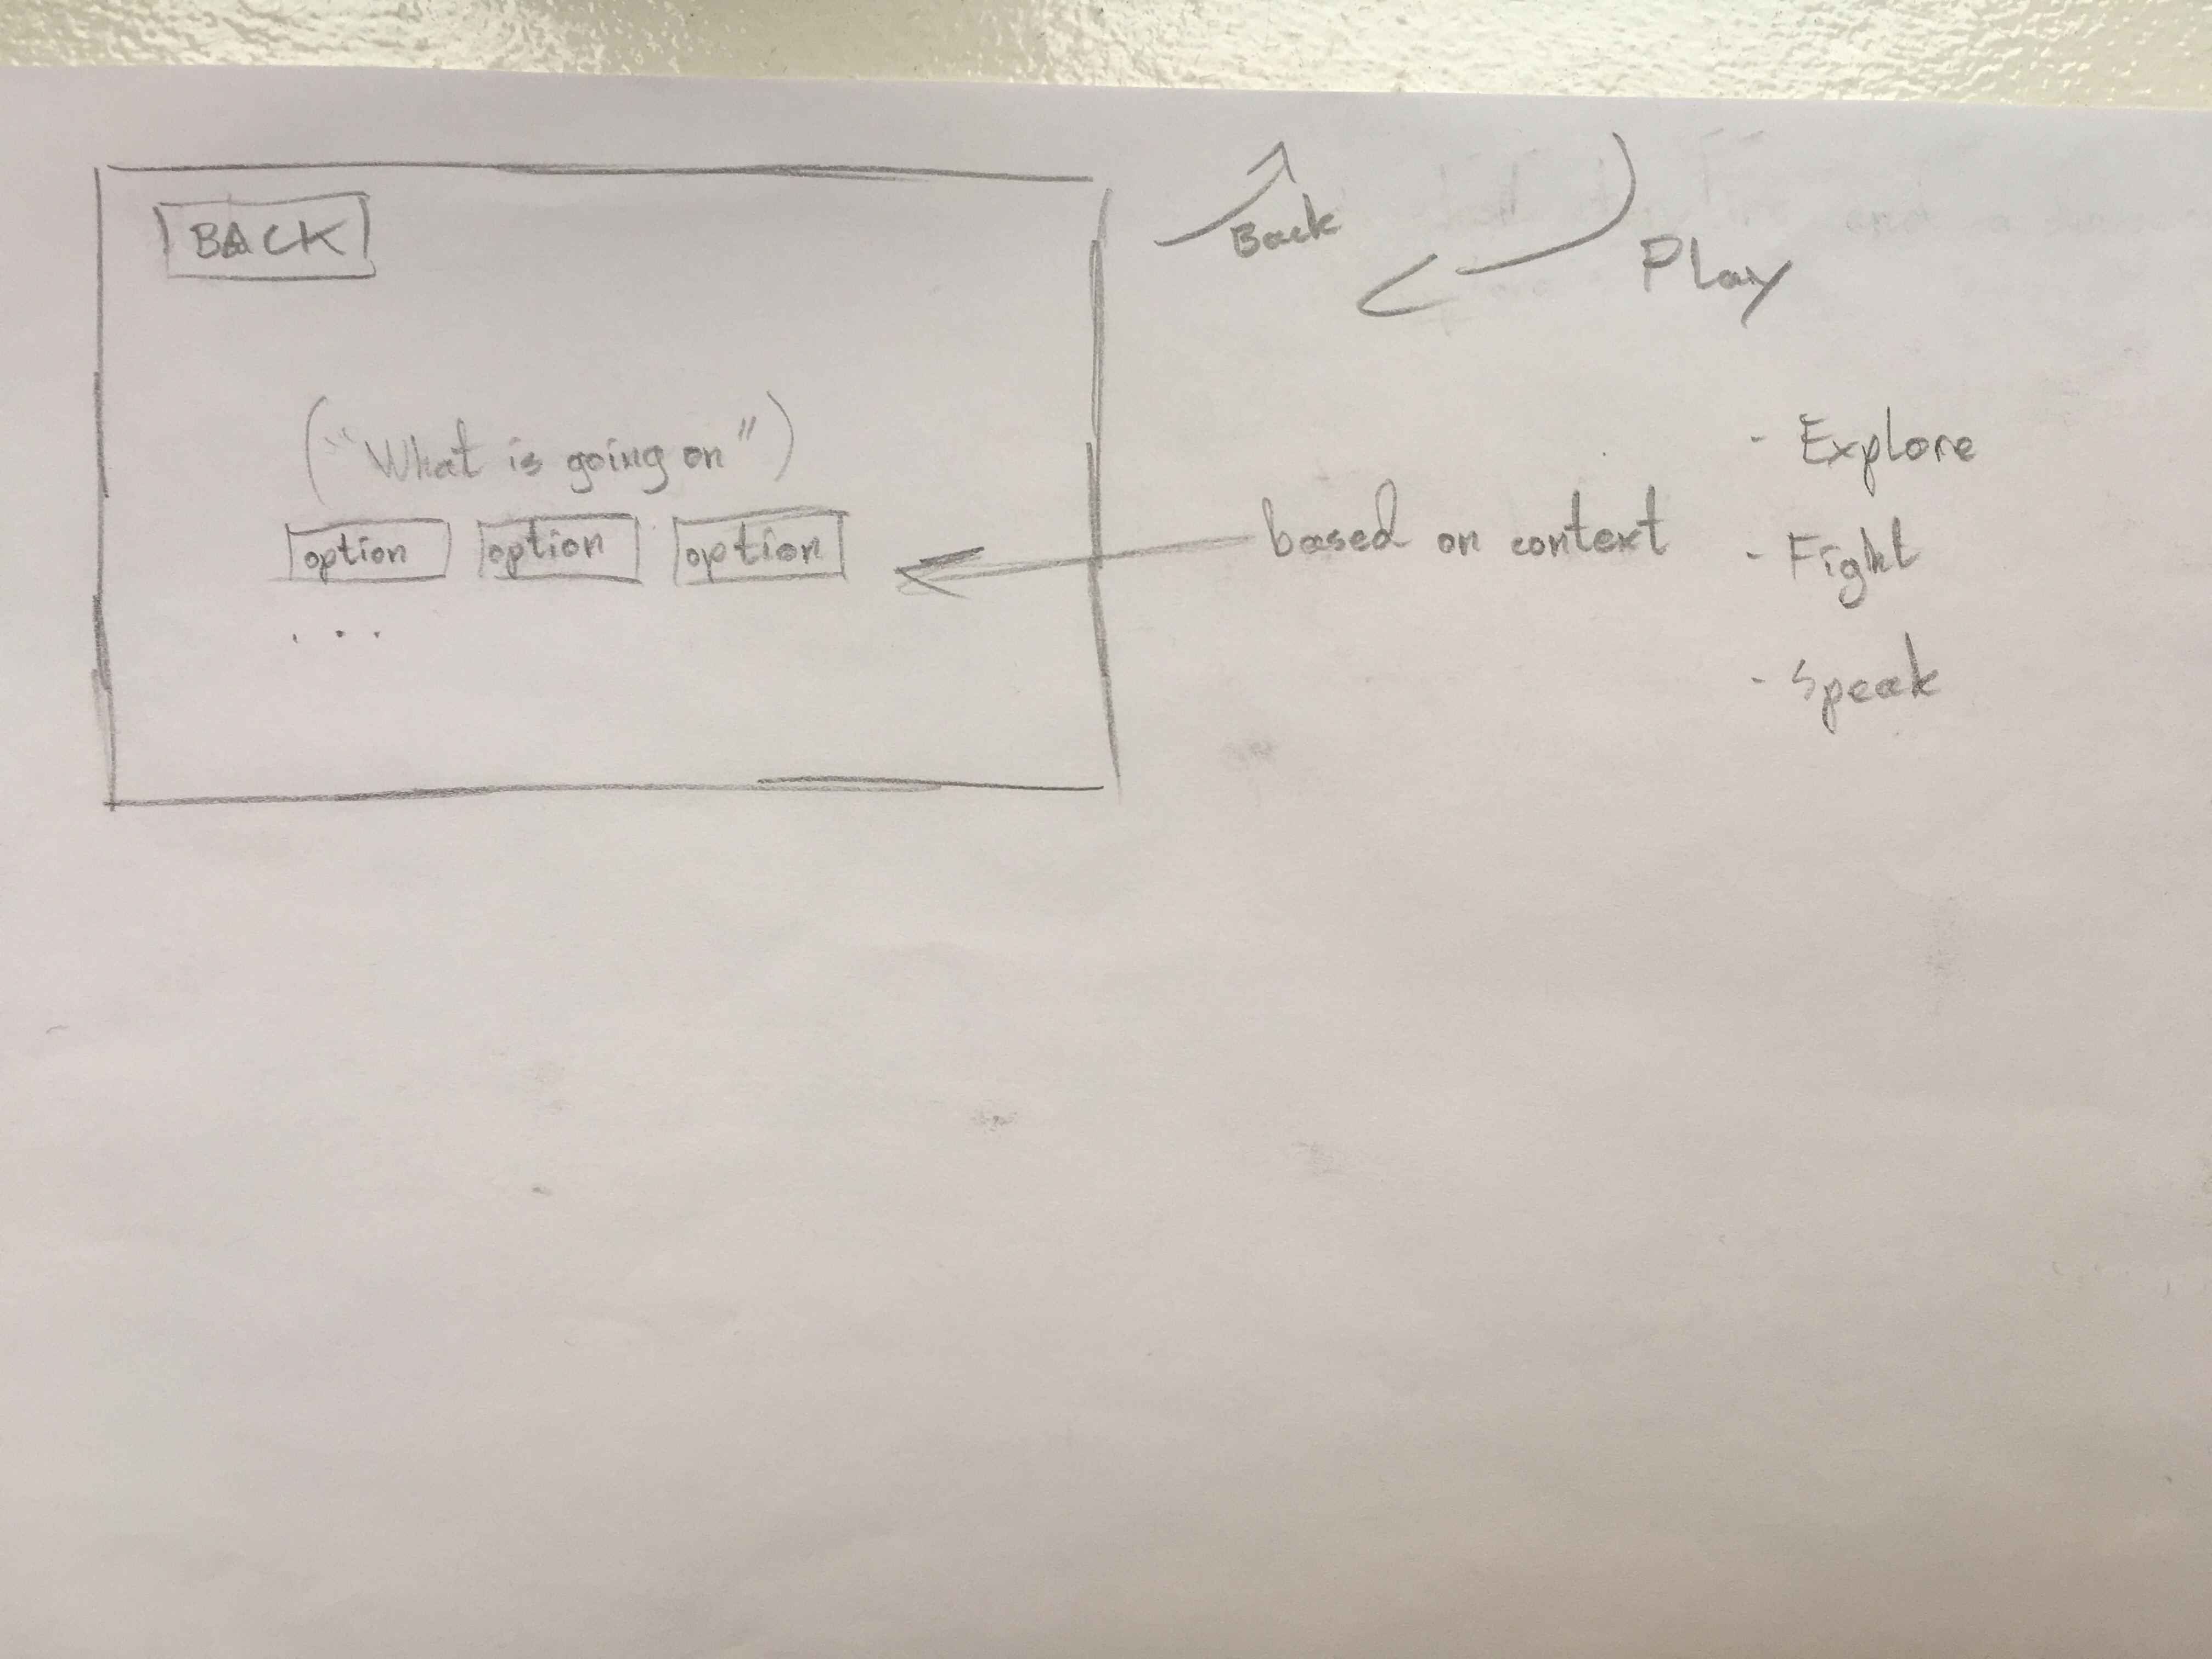 BACK
("What is going on")
option option option
...
Back
Play
based on context
- Explore
- Fight
- Speak